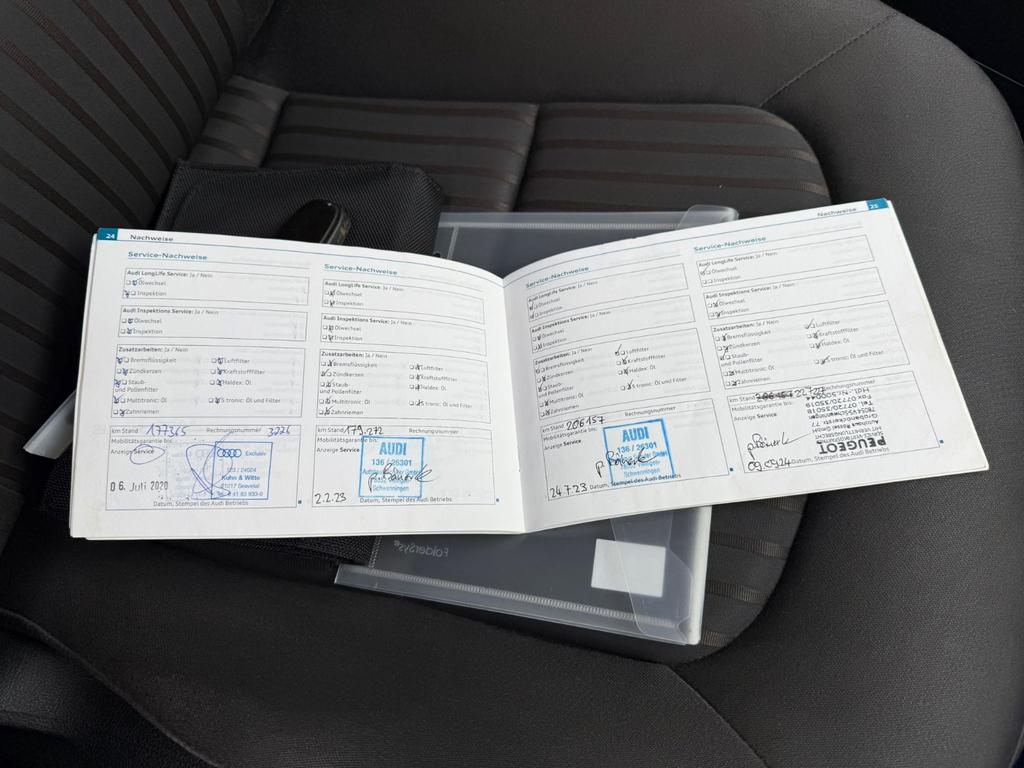 24 Nachweise
Service-Nachweise
Audi LongLife Service: Ja / Nein
Ölwechsel
Inspektion
Audi Inspektions Service: Ja / Nein
Ölwechsel
Inspektion
Zusatzarbeiten: Ja / Nein
Bremsflüssigkeit Luftfilter
Zündkerzen Kraftstofffilter
Staub- Haldex: Öl
und Pollenfilter
Multitronic: Öl S tronic: Öl und Filter
Zahnriemen
km Stand 177365 Rechnungsnummer 3226
Mobilitätsgarantie bis:
Anzeige Service
Audi Exklusiv
Kuhn & Witte
21217 Seevetal
06. Juli 2020
Datum, Stempel des Audi Betriebs
Service-Nachweise
Audi LongLife Service: Ja / Nein
Ölwechsel
Inspektion
Audi Inspektions Service: Ja / Nein
Ölwechsel
Inspektion
Zusatzarbeiten: Ja / Nein
Bremsflüssigkeit Luftfilter
Zündkerzen Kraftstofffilter
Staub- Haldex: Öl
und Pollenfilter
Multitronic: Öl S tronic: Öl und Filter
Zahnriemen
km Stand 179.272 Rechnungsnummer
Mobilitätsgarantie bis:
Anzeige Service
AUDI
136 / 26301
Schwenningen
2.2.23
Datum, Stempel des Audi Betriebs
Nachweise 25
Service-Nachweise
Audi LongLife Service: Ja / Nein
Ölwechsel
Inspektion
Audi Inspektions Service: Ja / Nein
Ölwechsel
Inspektion
Zusatzarbeiten: Ja / Nein
Bremsflüssigkeit Luftfilter
Zündkerzen Kraftstofffilter
Staub- Haldex: Öl
und Pollenfilter
Multitronic: Öl S tronic: Öl und Filter
Zahnriemen
km Stand 206157 Rechnungsnummer
Mobilitätsgarantie bis:
Anzeige Service
AUDI
136 / 26301
Schwenningen
24.7.23 Datum, Stempel des Audi Betriebs
Service-Nachweise
Audi LongLife Service: Ja / Nein
Ölwechsel
Inspektion
Audi Inspektions Service: Ja / Nein
Ölwechsel
Inspektion
Zusatzarbeiten: Ja / Nein
Bremsflüssigkeit Luftfilter
Zündkerzen Kraftstofffilter
Staub-
und Pollenfilter
Multitronic: Öl S tronic: Öl und Filter
Zahnriemen
km Stand Rechnungsnummer
Mobilitätsgarantie bis:
Anzeige Service
PEUGEOT
Tel. 07720/35018
Fax 07720/35019
09.09.24 Datum, Stempel des Audi Betriebs
FolderSys